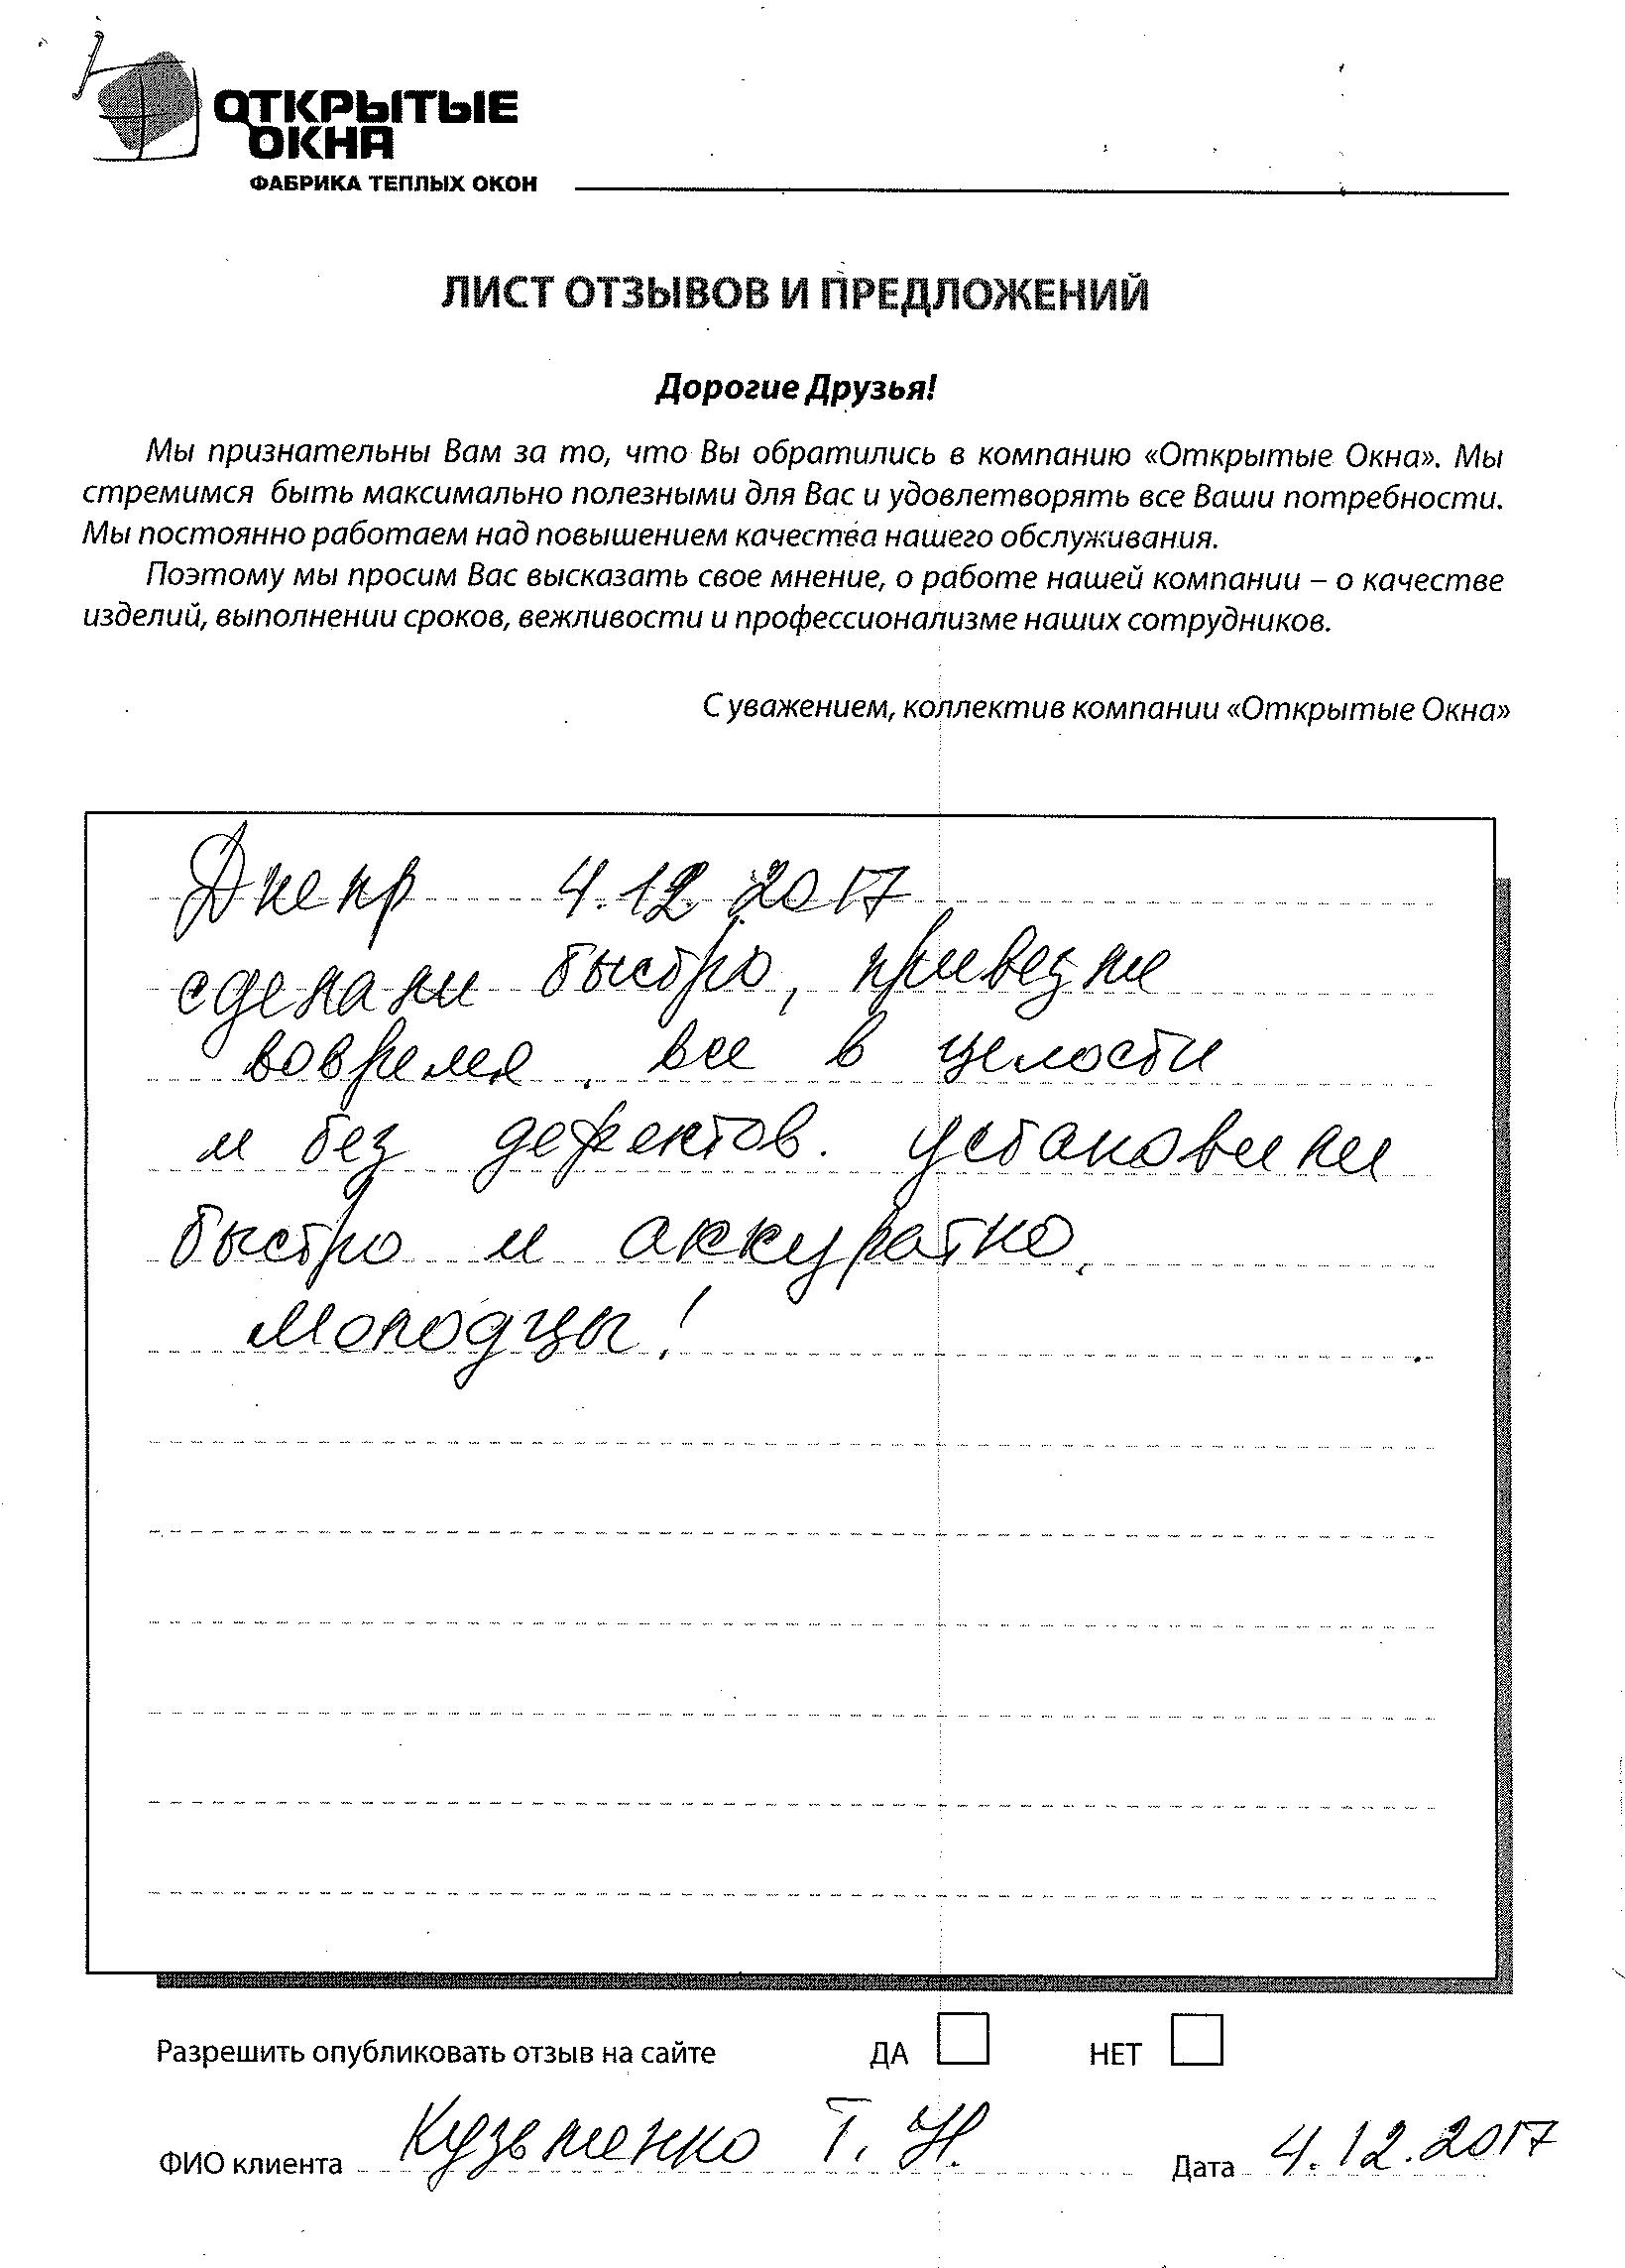 ОТКРЫТЫЕ
ОКНА
ФАБРИКА ТЕПЛЫХ ОКОН
ЛИСТ ОТЗЫВОВ И ПРЕДЛОЖЕНИЙ
Дорогие Друзья!
Мы признательны Вам за то, что Вы обратились в компанию «Открытые Окна». Мы
стремимся быть максимально полезными для Вас и удовлетворять все Ваши потребности.
Мы постоянно работаем над повышением качества нашего обслуживания.
Поэтому мы просим Вас высказать свое мнение, о работе нашей компании – о качестве
изделий, выполнении сроков, вежливости и профессионализме наших сотрудников.
С уважением, коллектив компании «Открытые Окна»
Днепр 4.12.2017
сделали быстро, привезли
вовремя. все в целости
и без дефектов. установили
быстро и аккуратно.
Молодцы!
Разрешить опубликовать отзыв на сайте ДА НЕТ
ФИО клиента Кузьменко Т. Н. Дата 4.12.2017